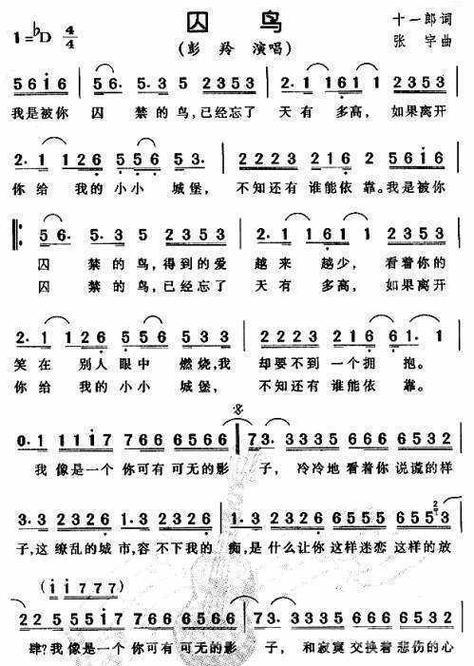 囚 鸟
1=♭D 4/4
十一郎 词
(彭 羚 演唱)
张 宇 曲
5 6 i 6 | 5 6. 5. 3 5 2 3 5 3 | 2. 1 1 6 1 1 2 3 5 3 |
我是被你 囚 禁的鸟,已经忘了 天有 多高, 如果离开
2. 1 1 2 6 5 5 6 5 3. | 2 2 2 3 2 1 6 2 5 6 i 6 |
你给 我的小小 城堡, 不知还有 谁能依靠。我是被你
5 6. 5. 3 5 2 3 5 3 | 2. 1 1 6 1 1 2 3 5 3 |
囚 禁的鸟,得到的爱 越来 越少, 看着你的
囚 禁的鸟,已经忘了 天有 多高, 如果离开
2. 1 1 2 6 5 5 6 5 3 3 | 2 2 2 3 2 1 6 6 1. 1 |
笑在 别人 眼中 燃烧,我 却要不到 一个拥 抱。
你给 我的小小 城堡, 不知还有 谁能依 靠。
0. 1 1 1 i 7 7 6 6 6 5 6 6 | 7 3. 3 3 3 5 6 6 6 6 5 3 2 |
我 像是一个 你可有 可无的影 子, 冷冷地 看着你 说谎的样
3. 3 2 3 2 6 1. 3 2 3 2 6 | 1. 3 2 3 2 6 6 5 5 6 5 5 3 |
子,这 缭乱的 城市,容 不下我的 痴,是 什么让你 这样迷恋 这样的放
(i i 7 7 7)
2 2 5 5 5 i 7 7 6 6 6 5 6 6 | 7 3. 3 3 3 5 6 6 6 6 5 3 2 |
肆?我 像是一个 你可有 可无的影 子, 和寂寞 交换着 悲伤的心